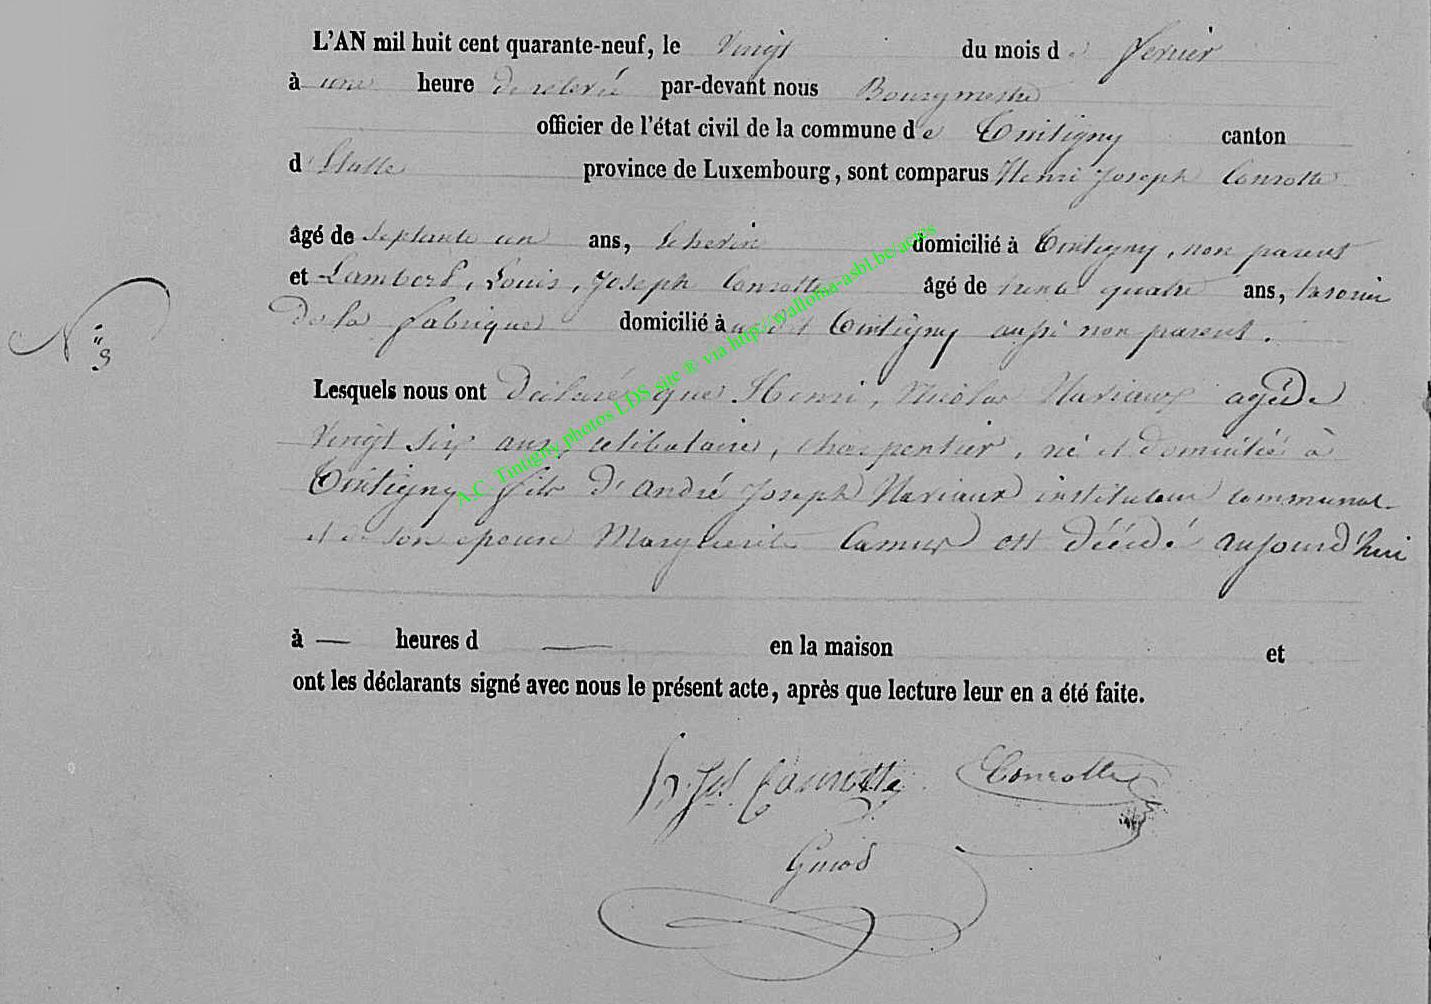 L'AN mil huit cent quarante-neuf, le Vingt du mois de fevrier
à une heure de relevée par-devant nous Bourgmestre
officier de l'état civil de la commune de Tintigny canton
d'Etalle province de Luxembourg, sont comparus Henri Joseph Conrotte
âgé de septante un ans, domicilié à Tintigny, non parent
et Lambert, Louis, Joseph Conrotte âgé de trente quatre ans,
de la fabrique domicilié à Tintigny aussi non parent.
N° 3
Lesquels nous ont Déclaré que Henri, Nicolas Naviaux agé de
Vingt six ans, celibataire, charpentier, né et domicilié à
Tintigny fils d'André Joseph Naviaux instituteur communal
et de son epouse Marguerite Camus est décédé aujourd'hui
à — heures d — en la maison et
ont les déclarants signé avec nous le présent acte, après que lecture leur en a été faite.
h. Jos. Conrotte Conrotte
A.C. Tintigny photos LDS site ® via http://walloma-asbl.be/actes